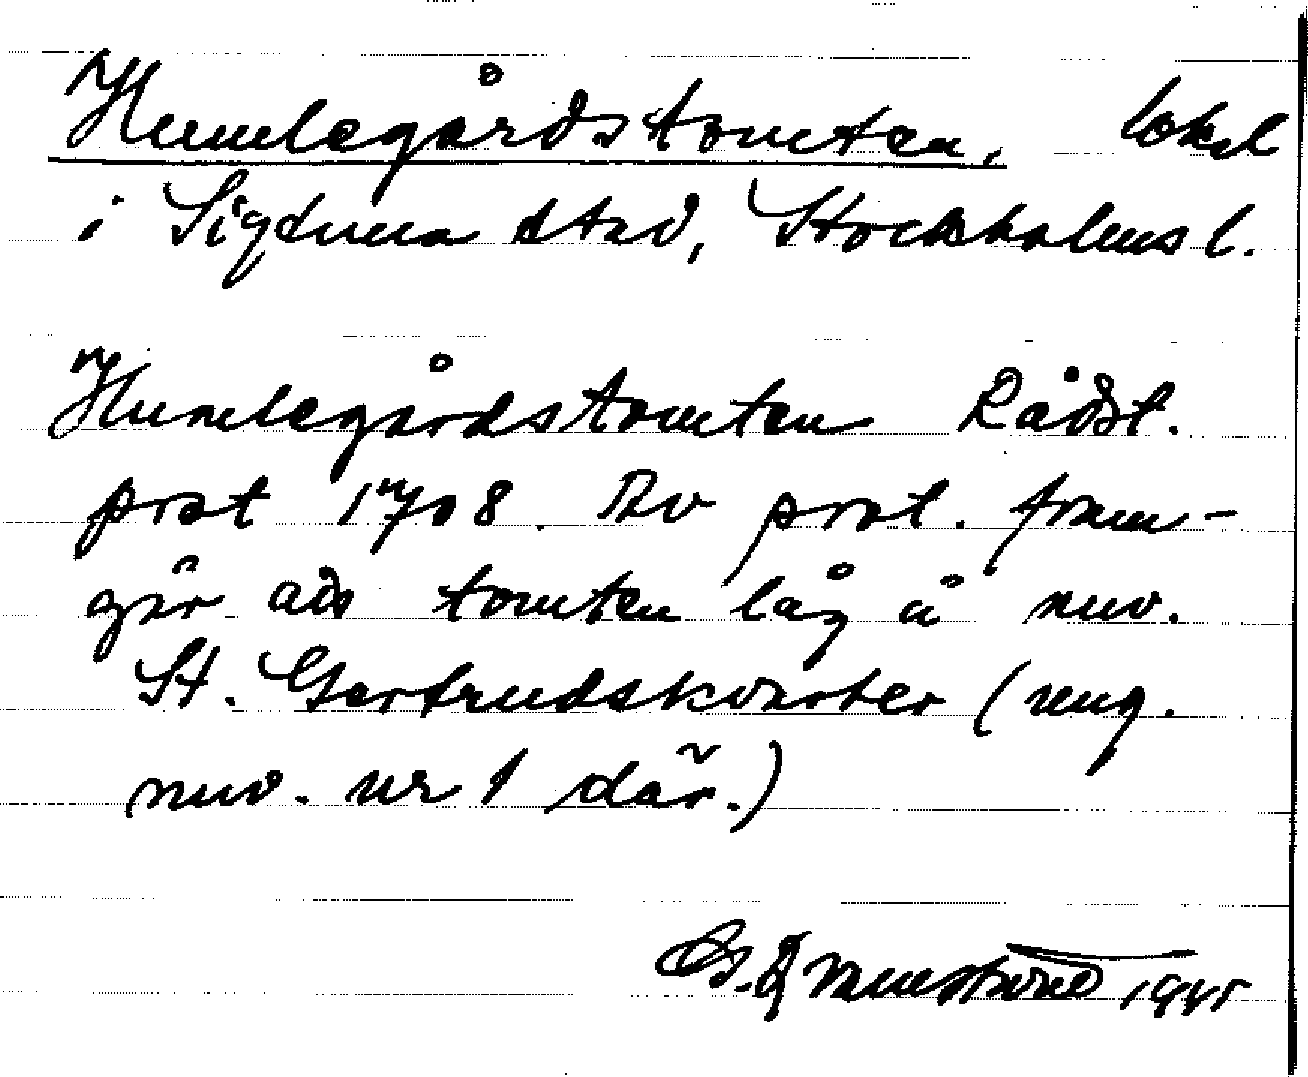 Humlegårdstomten, lokal
i Sigtuna stad, Stockholms l.
Humlegårdstomten Rådst.
prot 1708. Av prot. fram-
går att tomten låg å nuv.
St. Gertrudskvarter (ung.
nuv. nr 1 där.)
1945